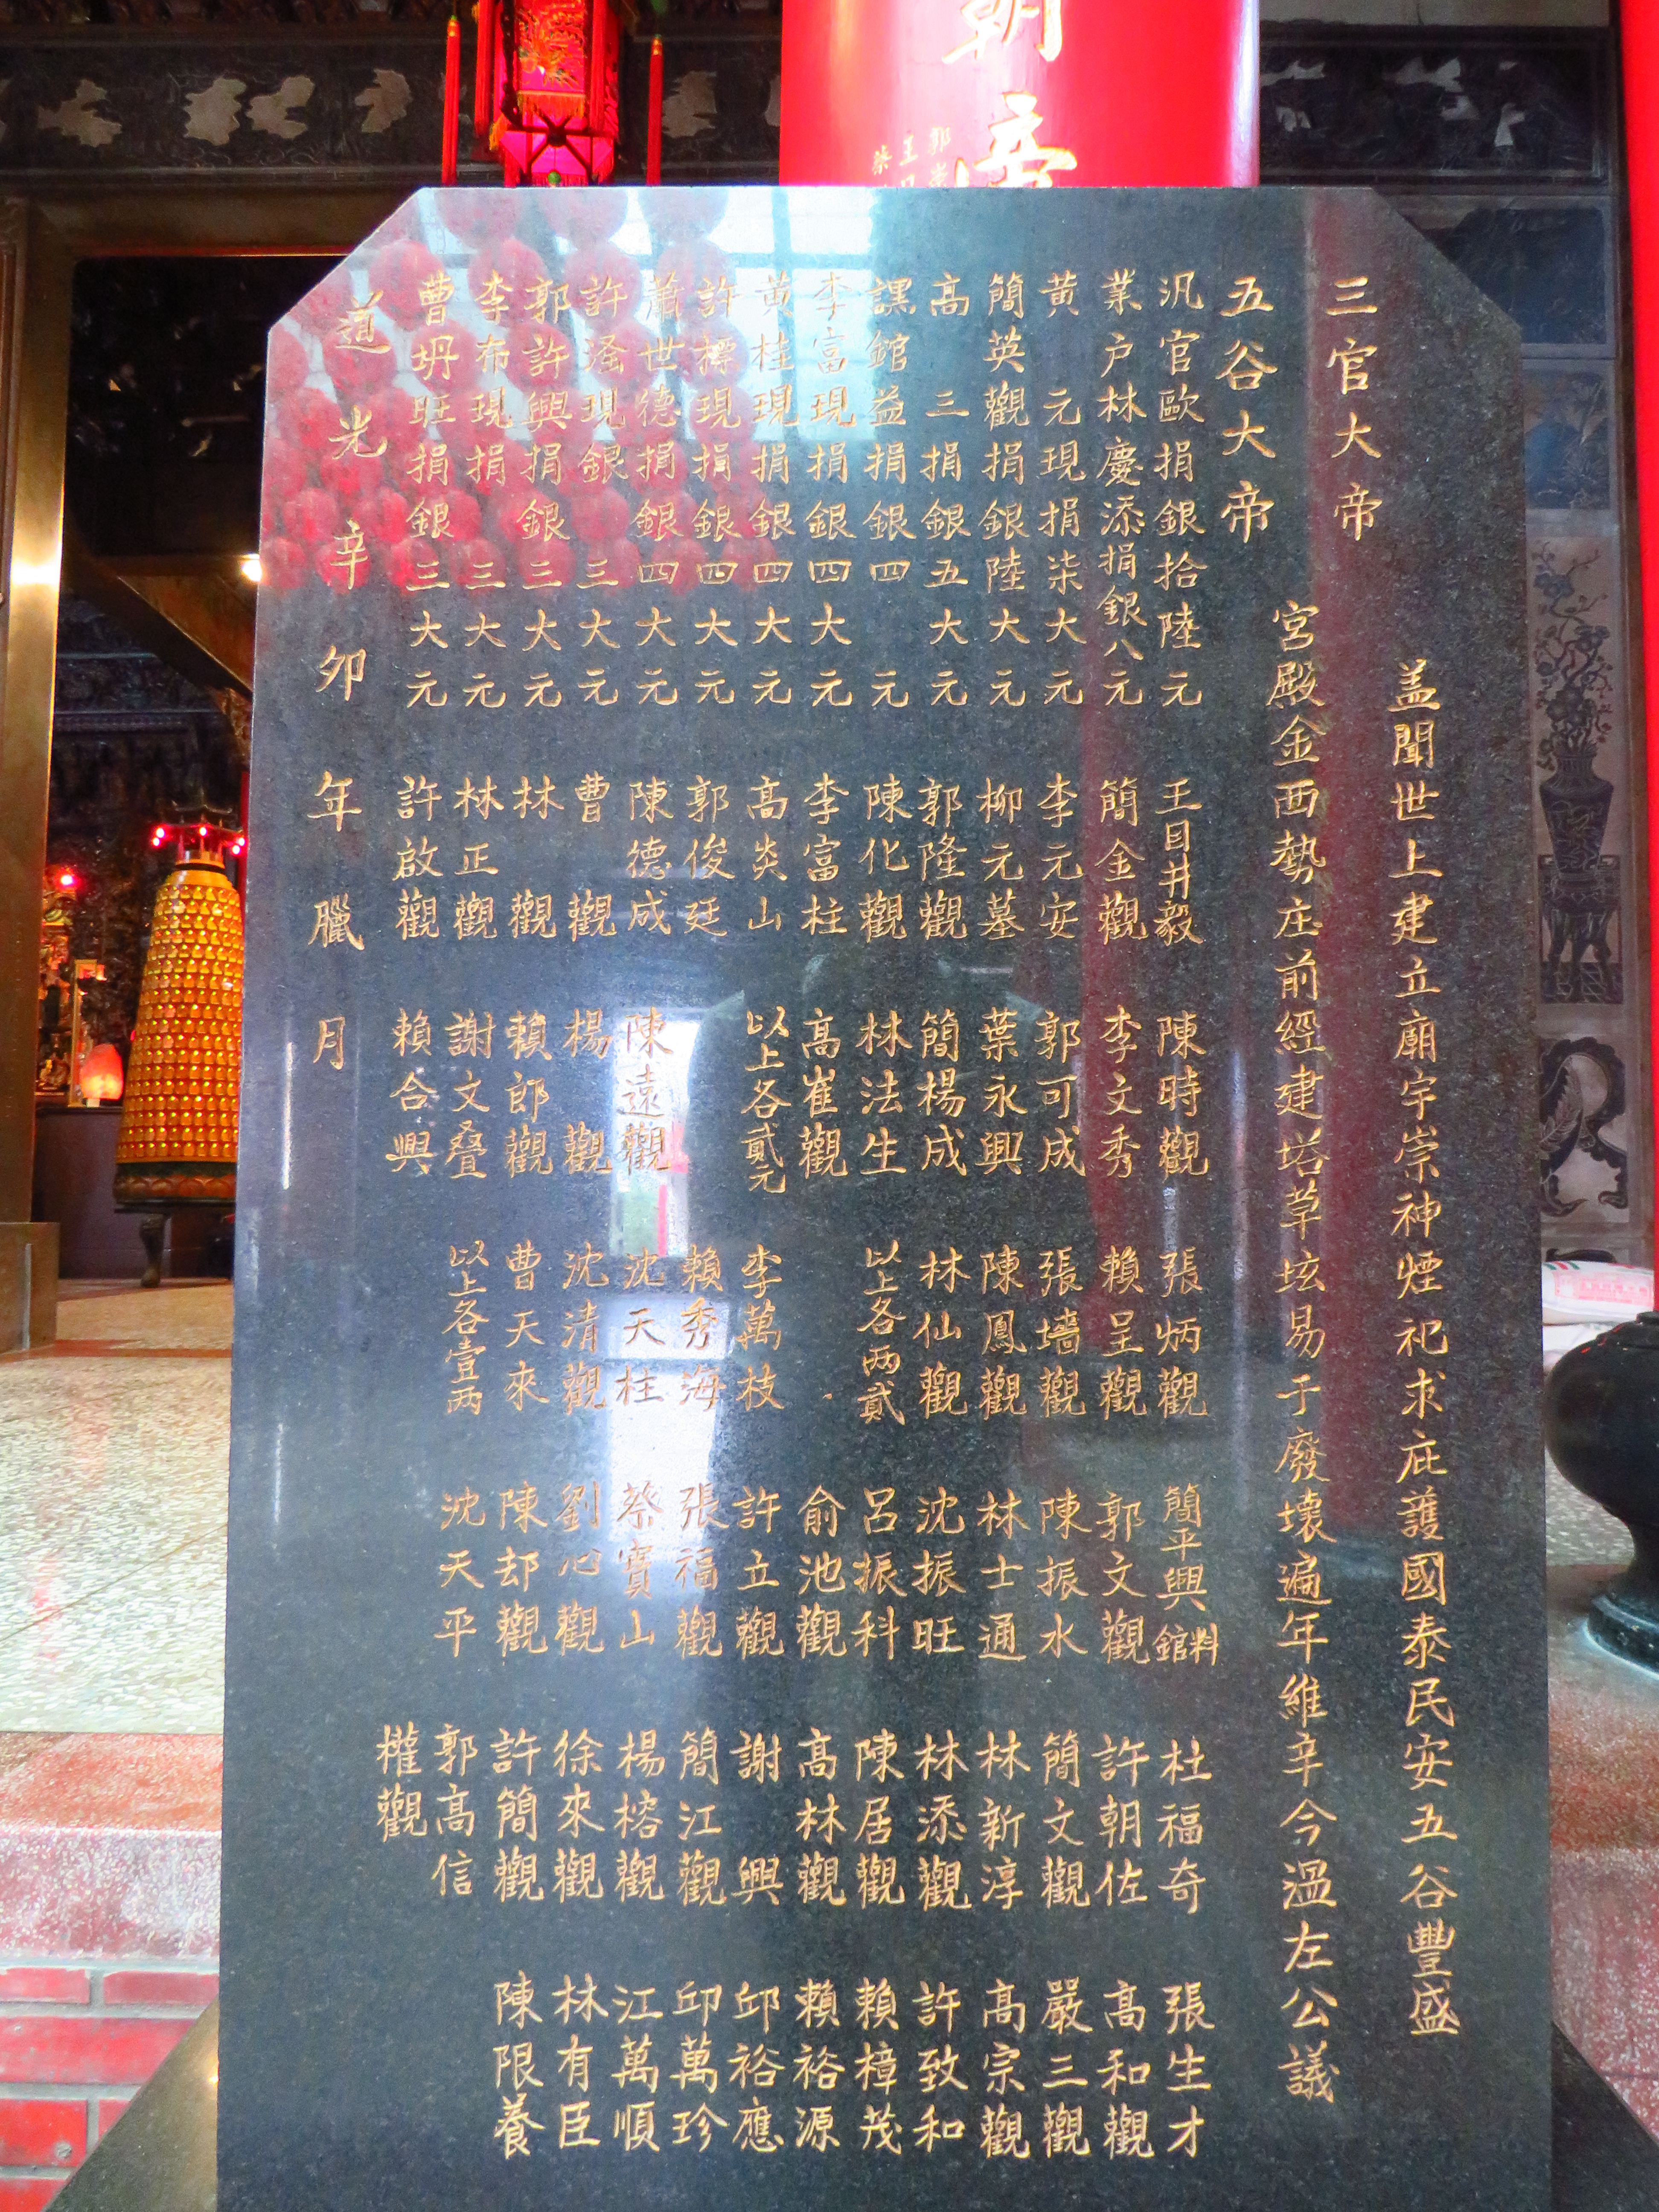 朝
帝
郭
王
蔡
三官大帝
盖聞世上建立廟宇崇神煙祀求庇護國泰民安五谷豐盛
五谷大帝
宮殿金西勢庄前經建塔草垓易于廢壞遍年維辛今溫左公議
汎官歐捐銀拾陸元 王目井毅 陳時觀 張炳觀 簡平興館料 杜福奇 張生才
業户林慶添捐銀八元 簡金觀 李文秀 賴呈觀 郭文觀 許朝佐 高和觀
黄元現捐柒大元 李元安 郭可成 張墻觀 陳振水 簡文觀 嚴三觀
簡英觀捐銀陸大元 柳元墓 葉永興 陳鳳觀 林士通 林新淳 高宗觀
高三捐銀五大元 郭隆觀 簡楊成 林仙觀 沈振旺 林添觀 許致和
課館益捐銀四元 陳化觀 林法生 以上各两貳 呂振科 陳居觀 賴樟茂
李富現捐銀四大元 李富柱 高崔觀 俞池觀 高林觀 賴裕源
黄桂現捐銀四大元 高炎山 以上各貳元 李萬枝 許立觀 謝興 邱裕應
許標現捐銀四大元 郭俊廷 賴秀海 張福觀 簡江觀 邱萬珍
蕭世德捐銀四大元 陳德成 陳遠觀 沈天柱 蔡寶山 楊榕觀 江萬順
許泽現銀三大元 曹觀 楊觀 沈清觀 劉心觀 徐來觀 林有臣
郭許興捐銀三大元 林觀 賴郎觀 曹天來 陳却觀 許簡觀 陳限養
李布現捐三大元 林正觀 謝文叠 以上各壹两 沈天平 郭高信
曹坍旺捐銀三大元 許啟觀 賴合興 權觀
道光辛卯年臘月